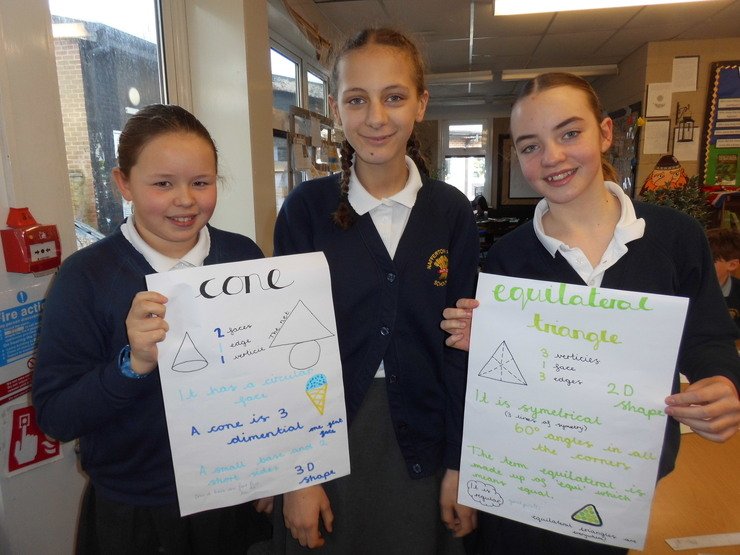 cone
2 faces
1 edge
1 verticie
The net
It has a circular
face
A cone is 3
dimential
A small base and
short sides
3D
shape
equilateral
triangle
3 verticies
1 face
3 edges
2D
shape
It is symetrical
(3 lines of symetry)
60° angles in all
the corners
The term equilateral is
made up of 'equi' which
means equal.
It is
regular
equilateral triangles are
Fire action